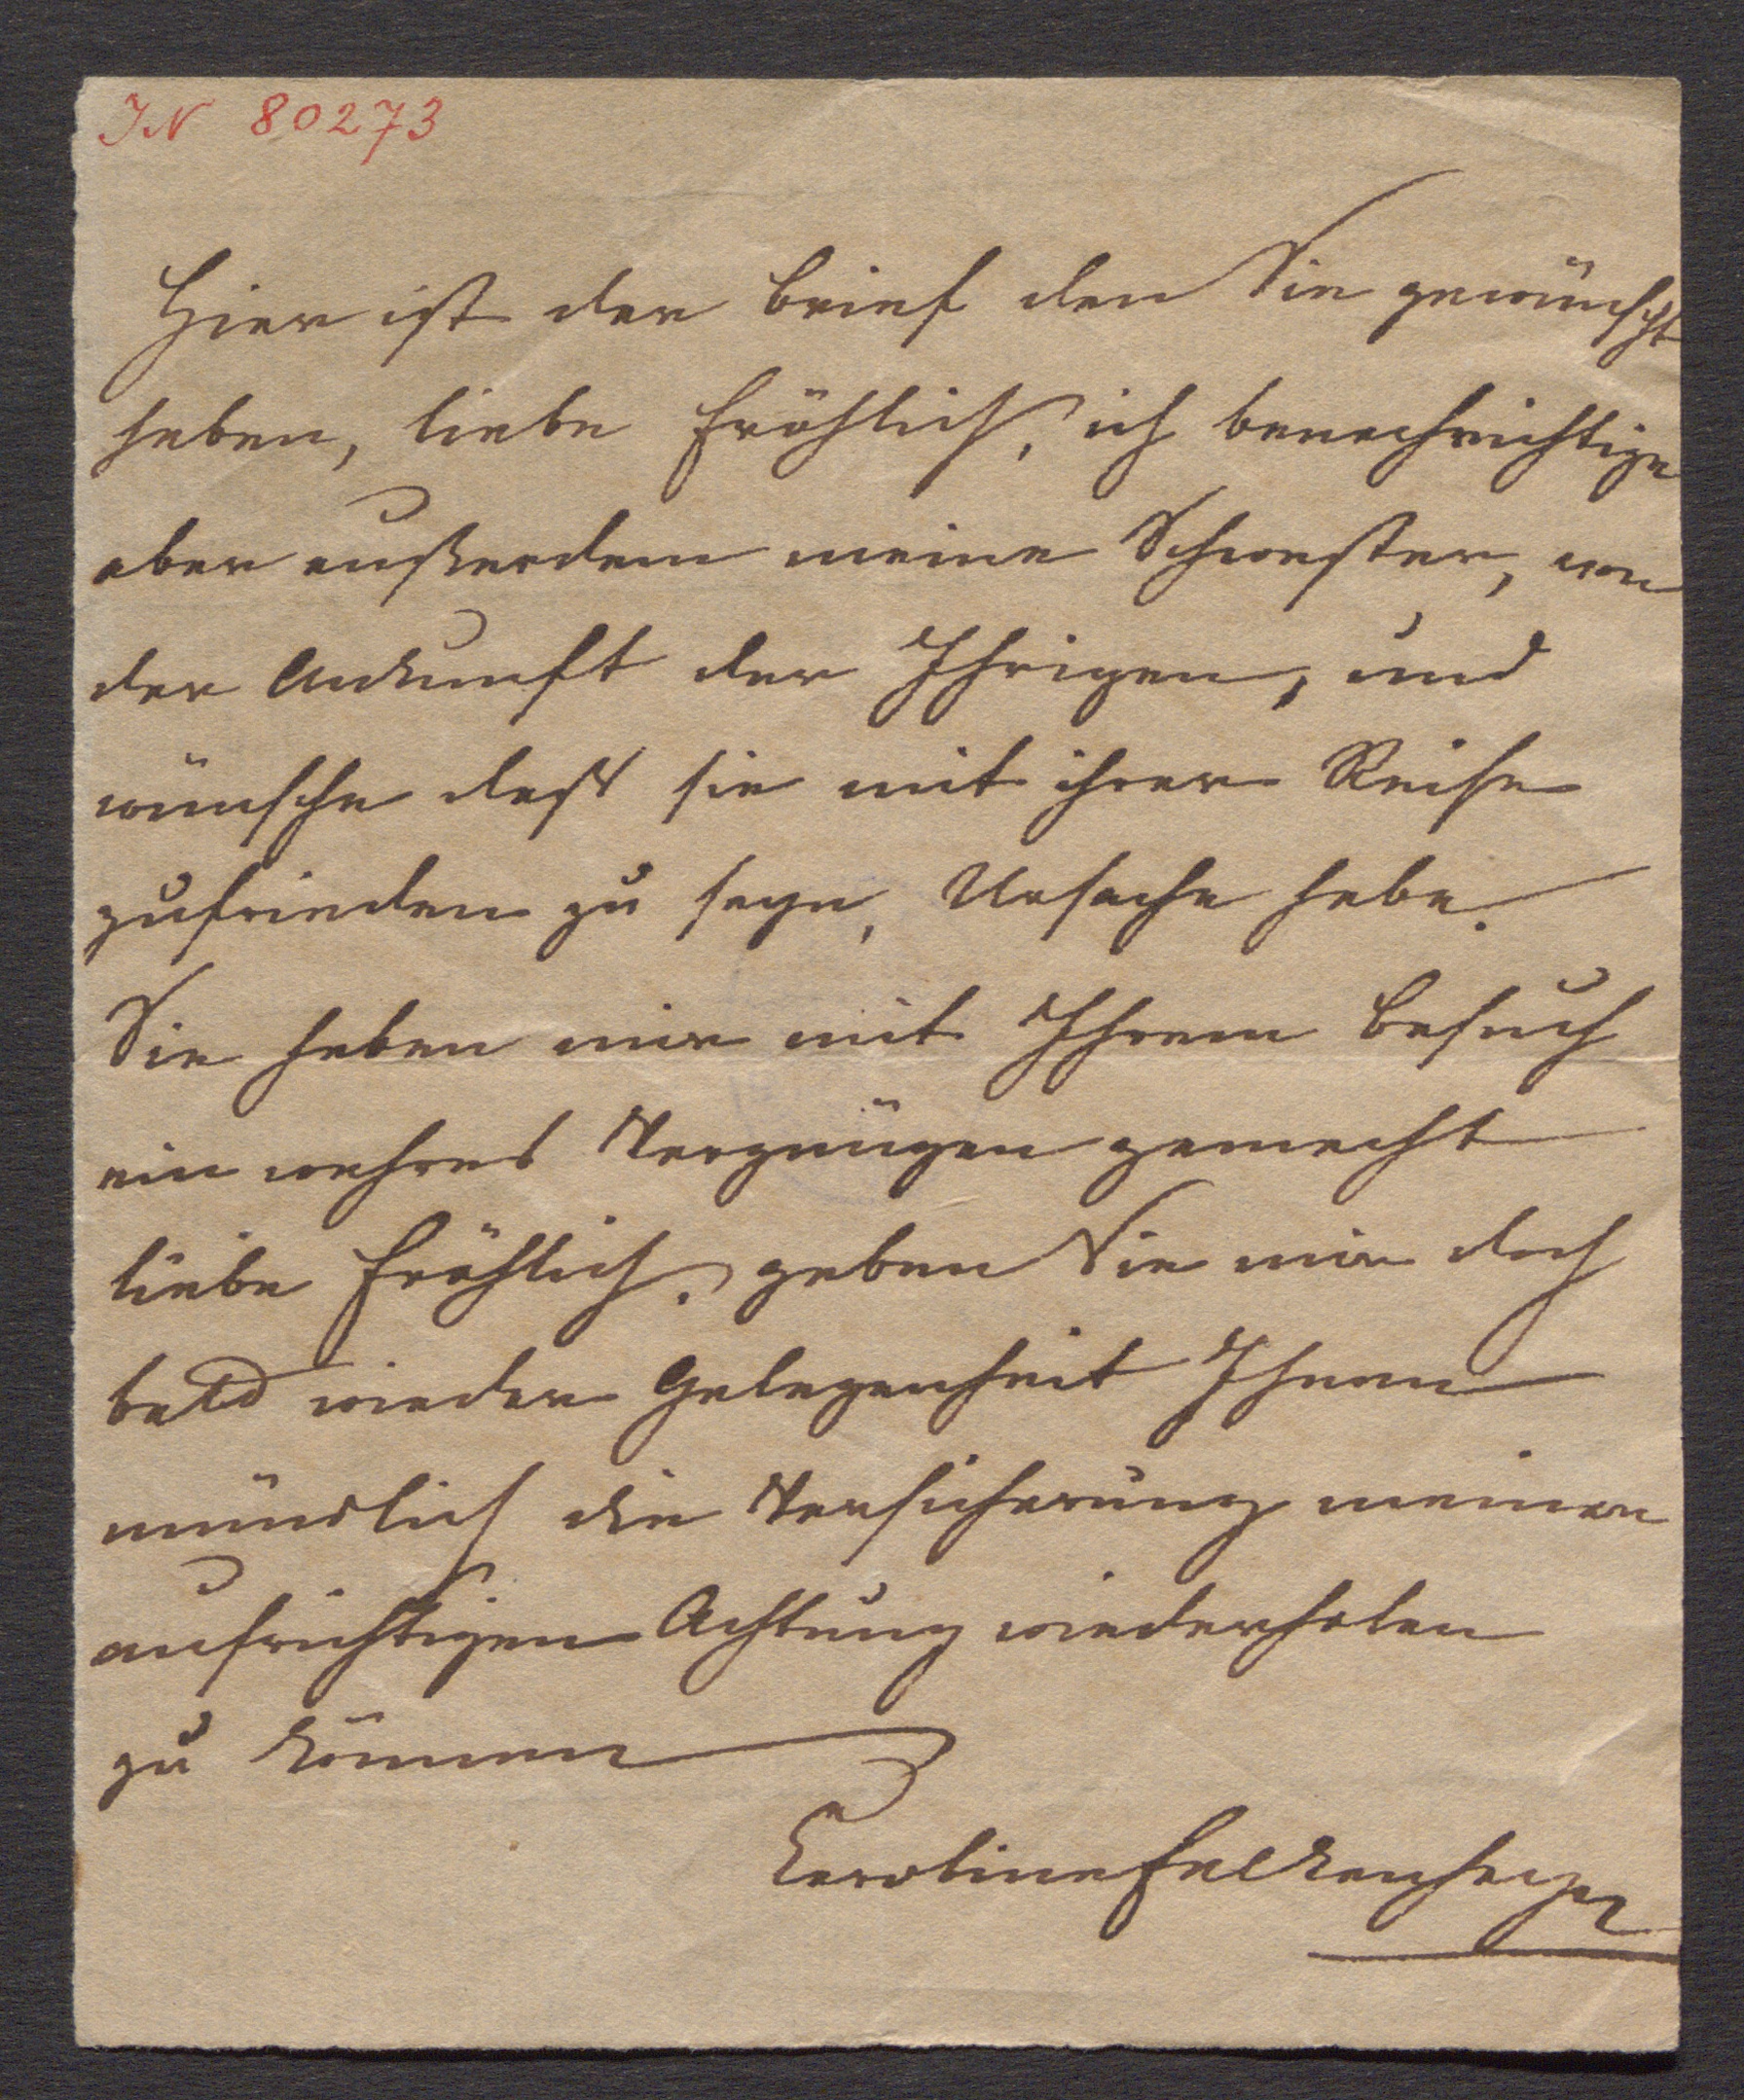 IN 80273
Hier ist der Brief den Sie gewünscht
haben, liebe Fröhlich, ich benachrichtige
aber außerdem meine Schwester, von
der Ankunft der Ihrigen, und
wünsche daß sie mit ihrer Reise
zufrieden zu seyn, Ursache habe.
Sie haben mir mit Ihrem Besuch
ein wahres Vergnügen gemacht
liebe Fröhlich. geben Sie mir doch
bald wieder Gelegenheit Ihnen
mündlich die Versicherung meiner
aufrichtigen Achtung wiederholen
zu können
Caroline